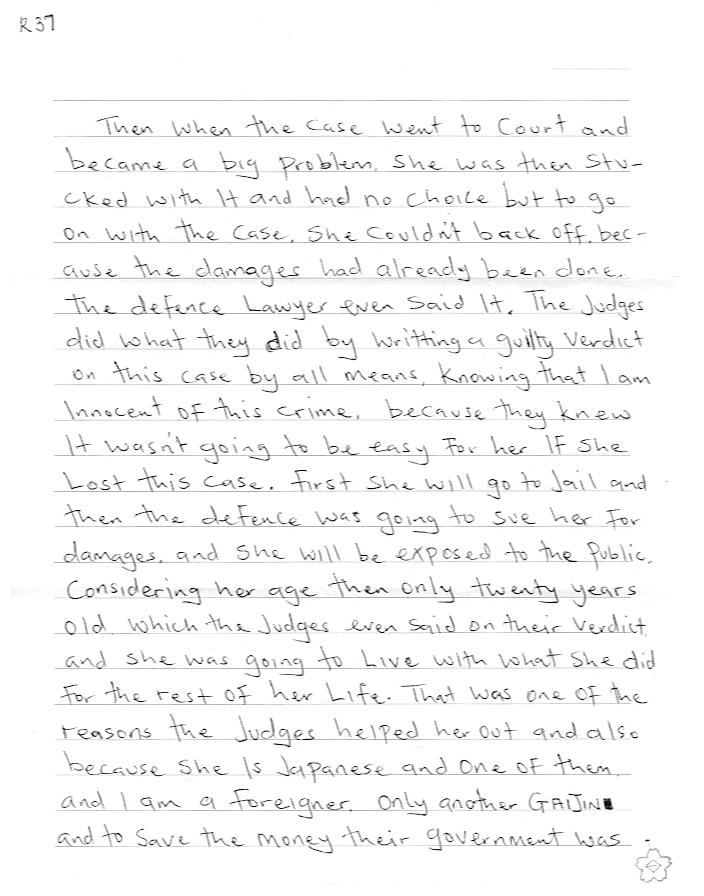 R37
Then when the case went to Court and
became a big problem, She was then Stu-
cked with It and had no choice but to go
on with the Case. She Couldn't back off, bec-
ause the damages had already been done.
The defence Lawyer even Said It. The Judges
did what they did by writting a guilty Verdict
on this case by all means, Knowing that I am
Innocent of this crime, because they knew
It wasn't going to be easy For her IF She
Lost this Case. First She will go to Jail and
then the defence was going to sue her For
damages, and She will be exposed to the Public.
Considering her age then only twenty years
old, which the Judges even Said on their Verdict,
and She was going to Live with what She did
For the rest of her Life. That was one of the
reasons the Judges helped her out and also
because She Is Japanese and One of them,
and I am a foreigner. Only another GAIJIN
and to Save the money their government was